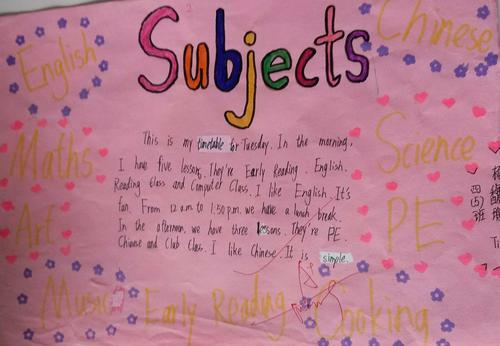 Subjects
Chinese
English
Maths
Science
Art
PE
Music
Early Reading
Cooking
This is my timetable for Tuesday. In the morning,
I have five lessons. They're Early Reading. English.
Reading Class and Computer Class. I like English. It's
fun. From 12 a.m to 1:50 p.m. we have a lunch break.
In the afternoon, we have three lessons. They're PE.
Chinese and Club Class. I like Chinese. It is simple.
四
(5)
班